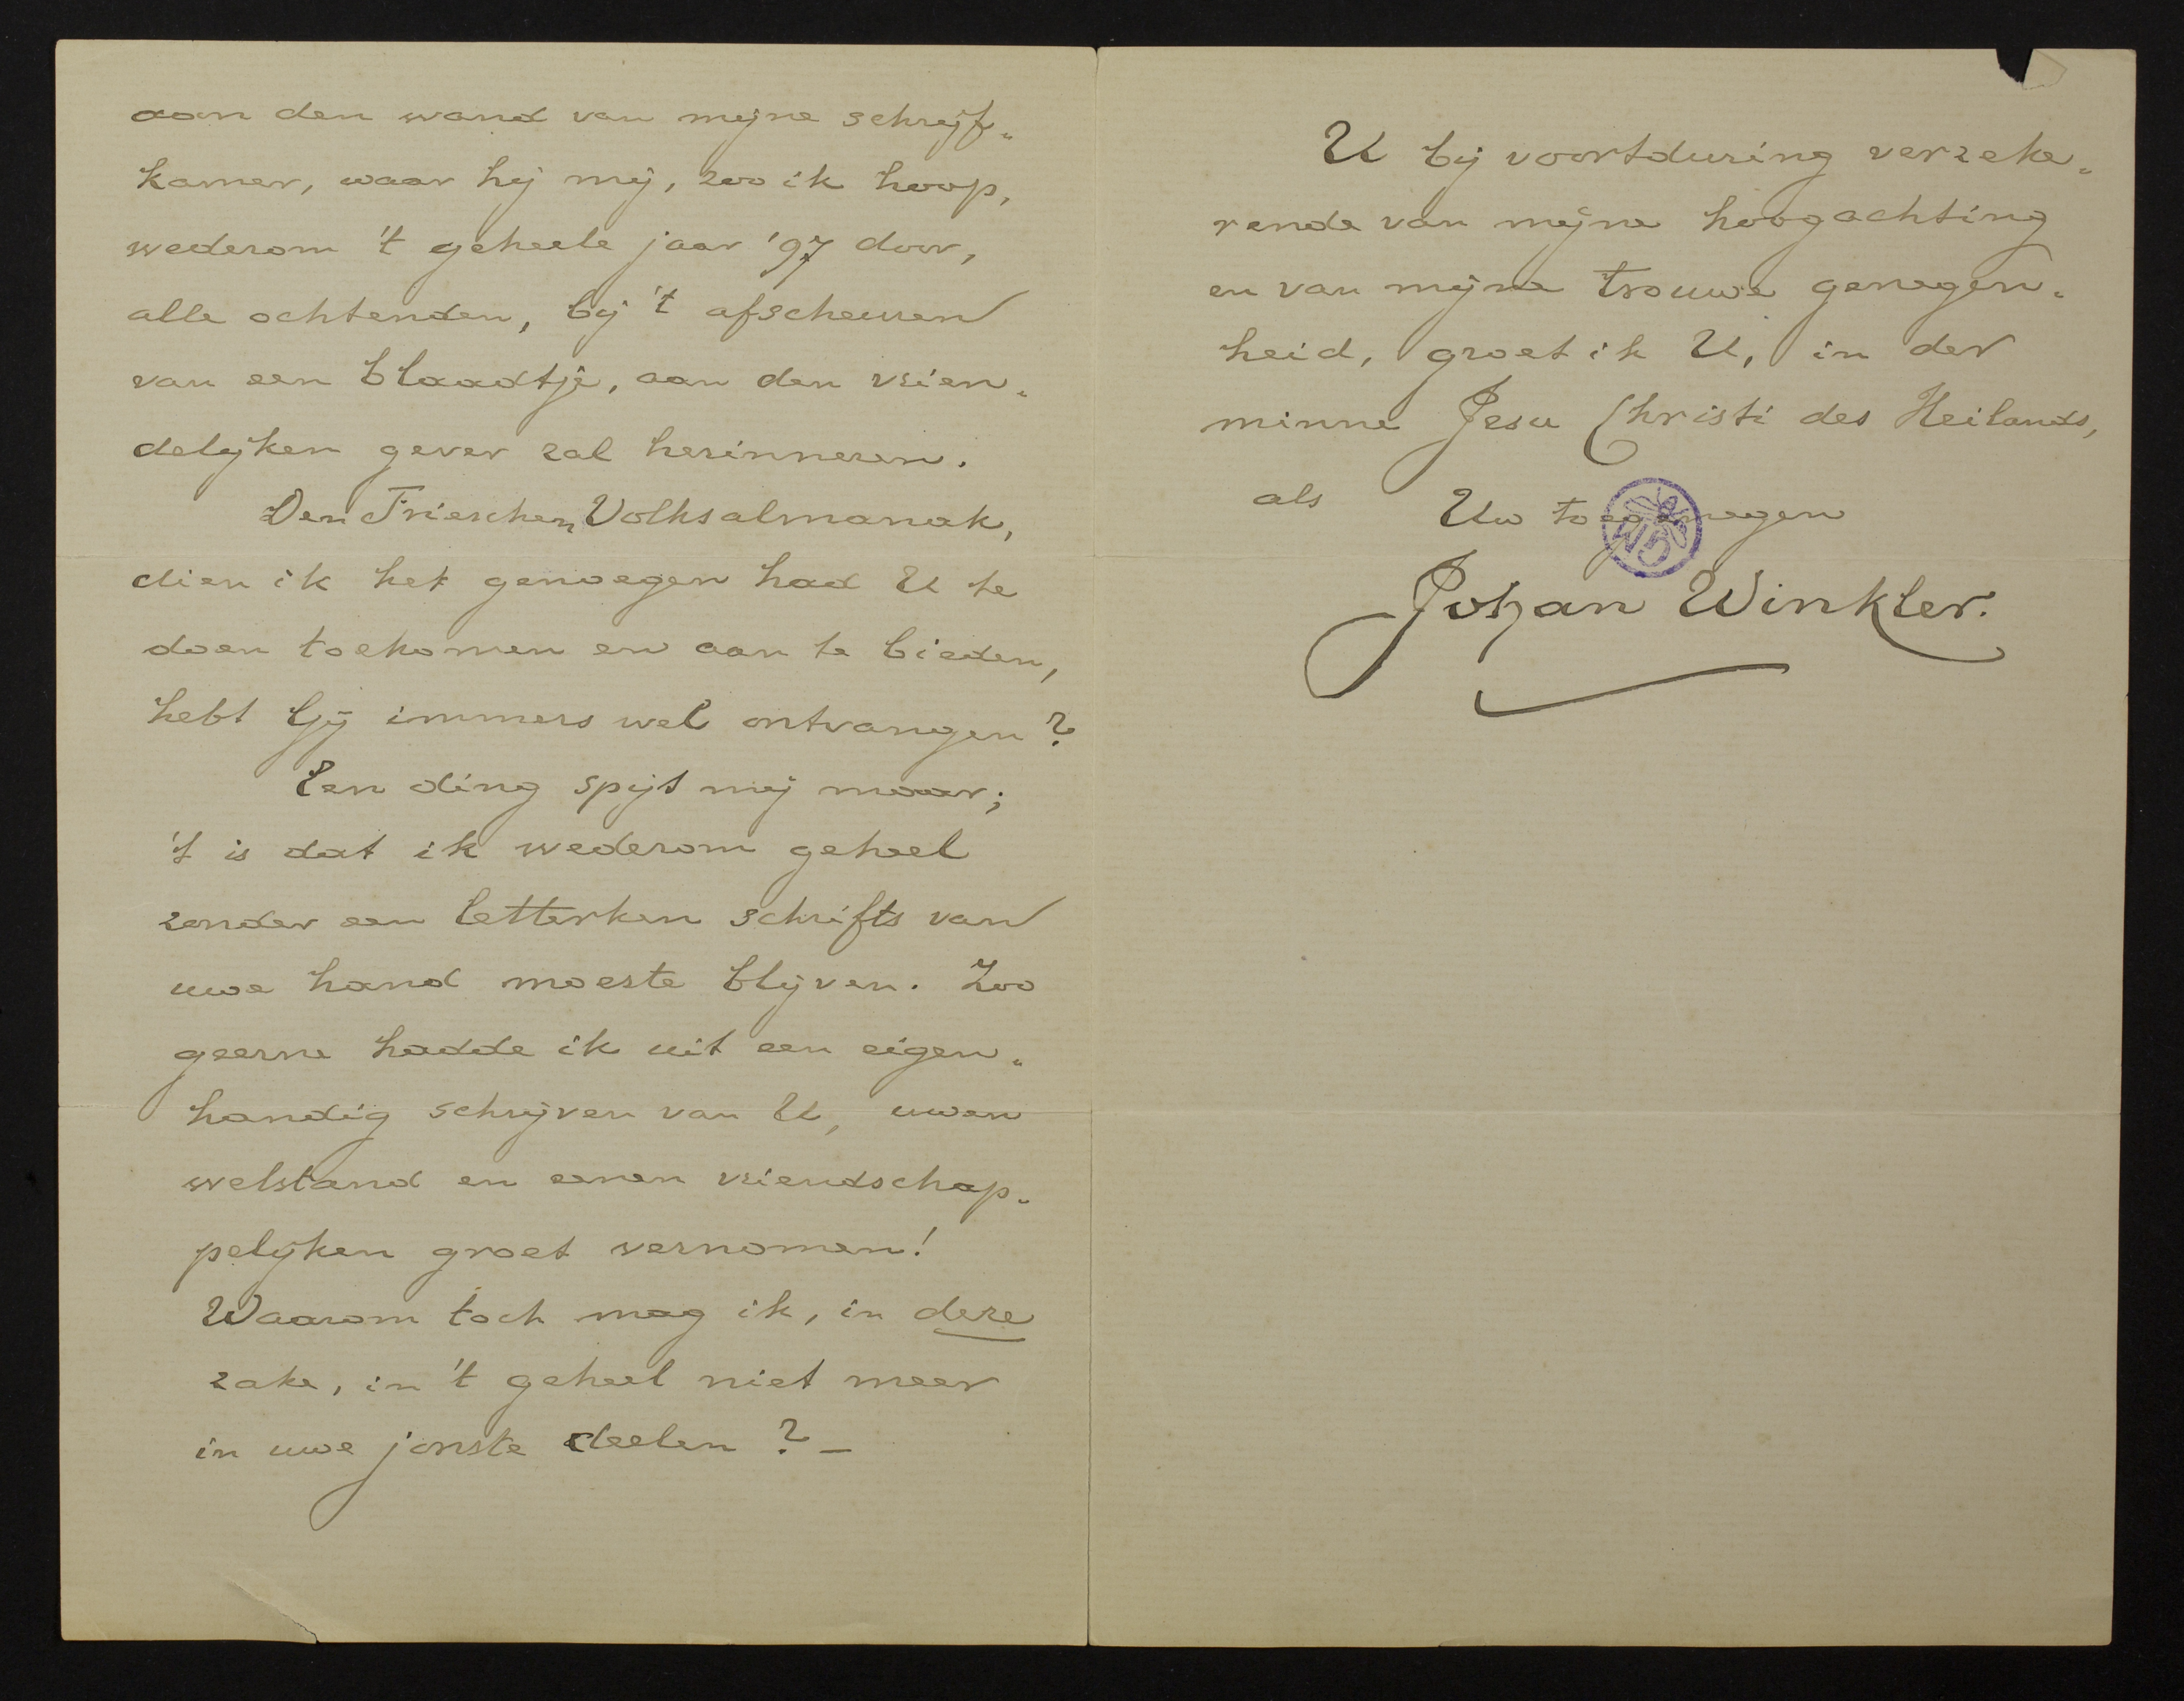 aan den wand van mijne schrijf-
kamer, waar hij mij, zoo ik hoop,
wederom 't geheele jaar '97 door,
alle ochtenden, bij 't afscheuren
van een blaadtje, aan den vrien-
delijken gever zal herinneren.
Den Frieschen Volksalmanak,
dien ik het genoegen had U te
doen toekomen en aan te bieden,
hebt Gij immers wel ontvangen?
Een ding spijt mij maar;
't is dat ik wederom geheel
zonder een letterken schrifts van
uwe hand moeste blijven. Zoo
geerne hadde ik uit een eigen-
handig schrijven van U, uwen
welstand en eenen vriendschap-
pelijken groet vernomen!
Waarom toch mag ik, in deze
zake, in 't geheel niet meer
in uwe jonste deelen? –
U bij voortduring verzeke-
rende van mijne hoogachting
en van mijne trouwe genegen-
heid, groet ik U, in der
minne Jesu Christi des Heilands,
als Uw toegenegen
Johan Winkler.